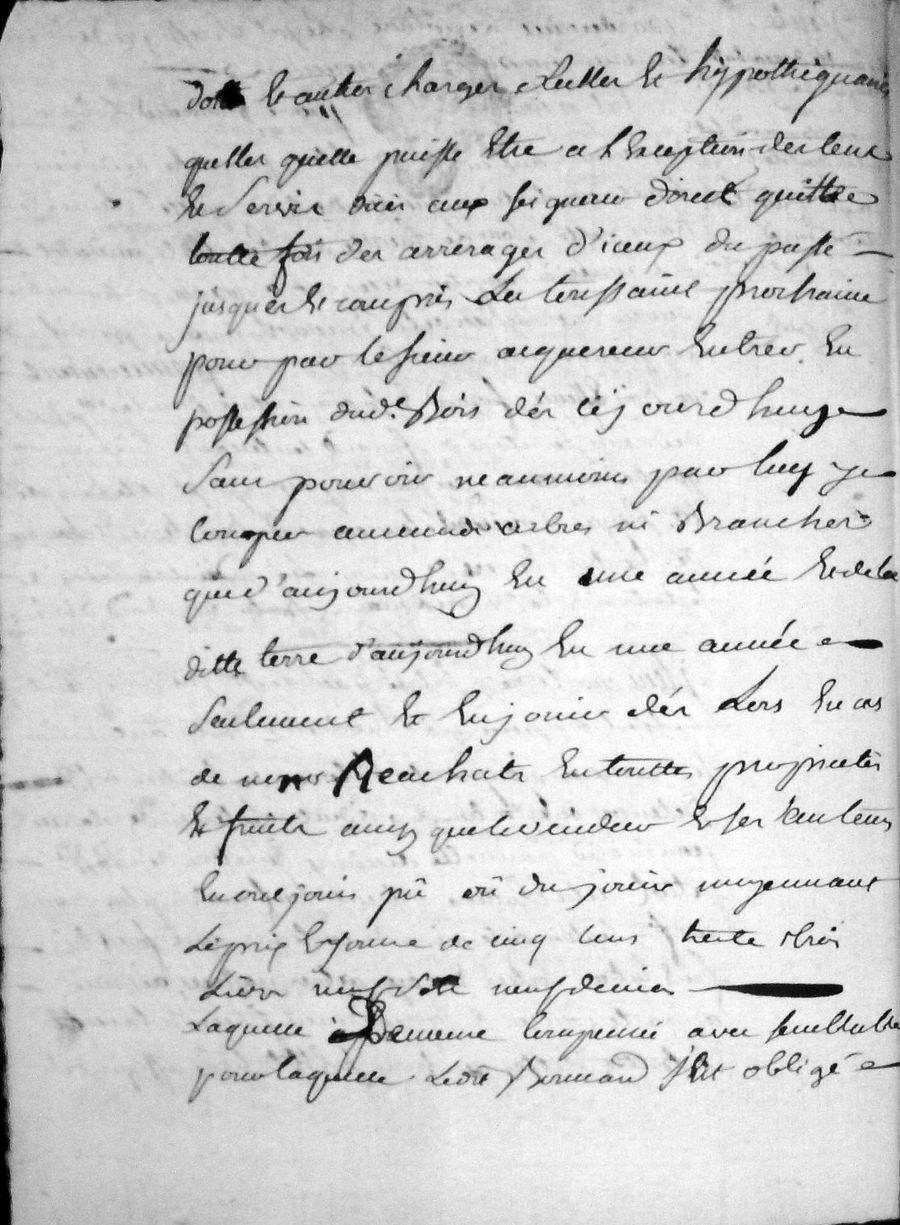 et autres charges dettes et hypothiquaires
quelles quelle puisse Etre a l'Exception des cens
et Servis aux seigneur direct quitte
toutte fois des arrerages d'iceux du passé
jusques et compris La toussaint prochaine
pour par le sieur acquereur Entrer En
possession dud.t Bois dés cejourd'huy
Sans pouvoir neanmoins par luy y
Couper aucuns arbres ni Brancher
que d'aujourd'huy En une année Et de la
ditte terre d'aujourd'huy En une année
Seulement Et En jouir dés Lors En cas
de non Reachats En touttes proprietés
Et fruits ainsy que le vendeur Et ses auteurs
En ont jouis pû où du jouir moyennant
Le prix Et somme de cinq Cens trente trois
Livres neuf Sols neuf deniers
Laquelle Demeure Compensée avec semblable
pour laquelle Ledit s'Est obligé